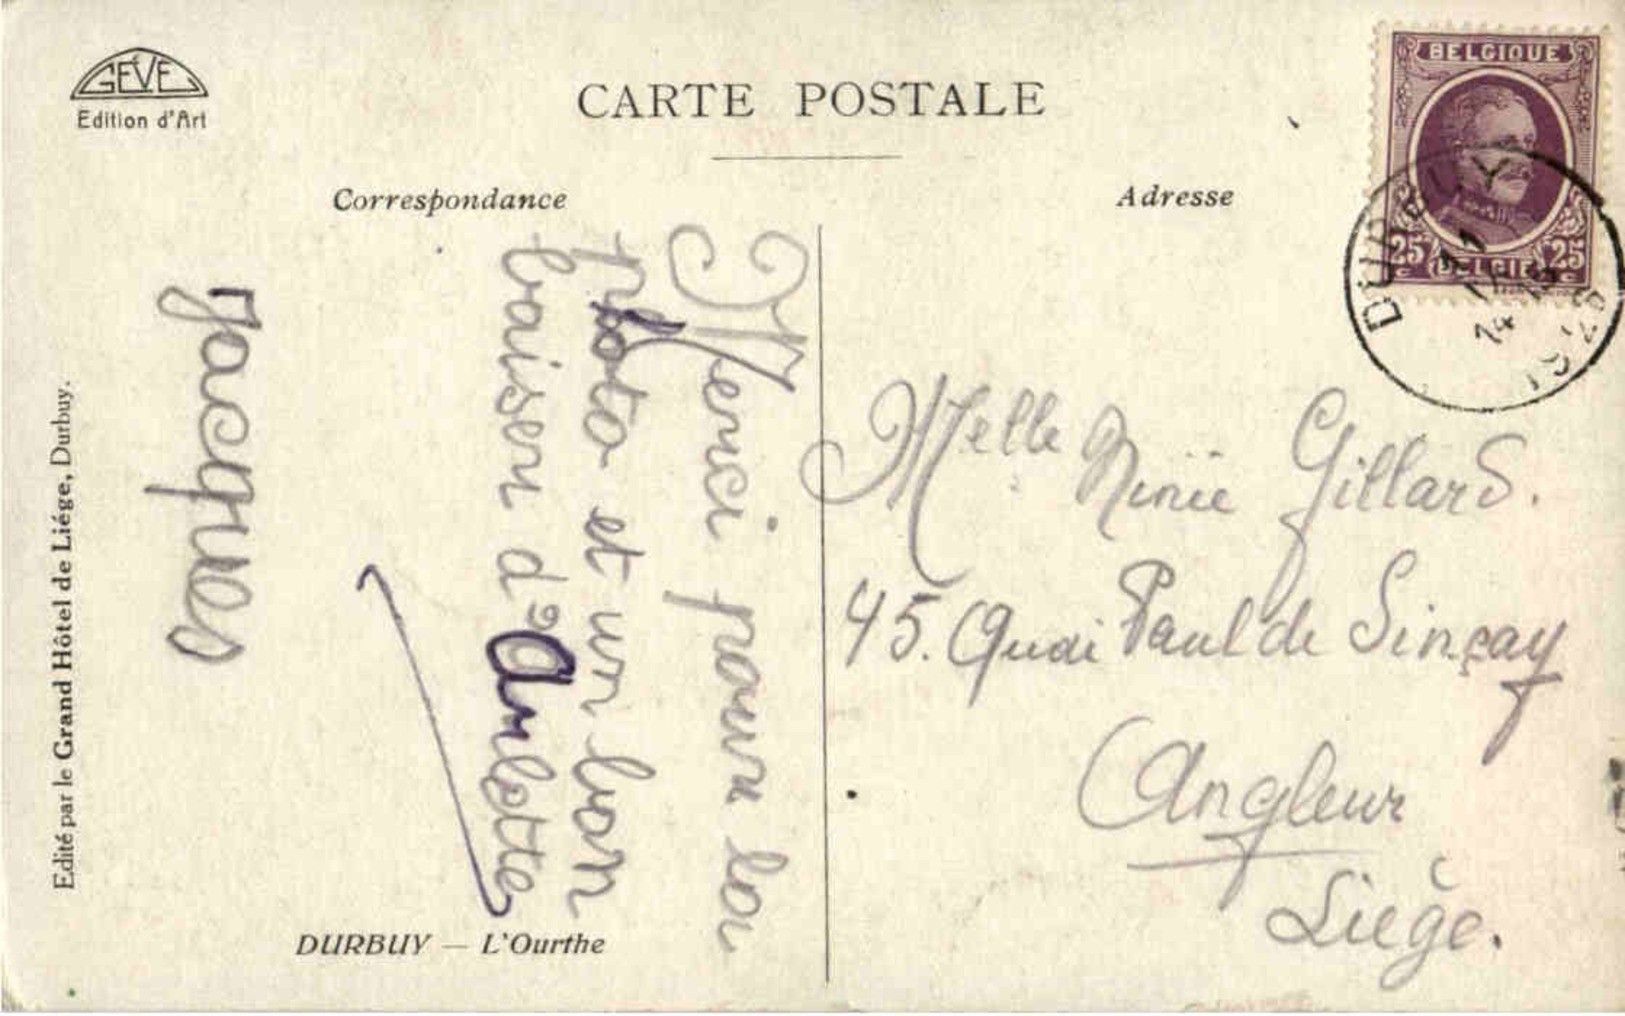 GEVE
Edition d'Art
CARTE POSTALE
Correspondance
Adresse
BELGIQUE
25 25
BELGIE
DURBUY
14
Merci pour la
photo et un bon
baiser d'Arlette
Jacques
Melle Ninie Gillard.
45. Quai Paul de Sinçay
Angleur
Liège.
Edité par le Grand Hôtel de Liége, Durbuy.
DURBUY — L'Ourthe